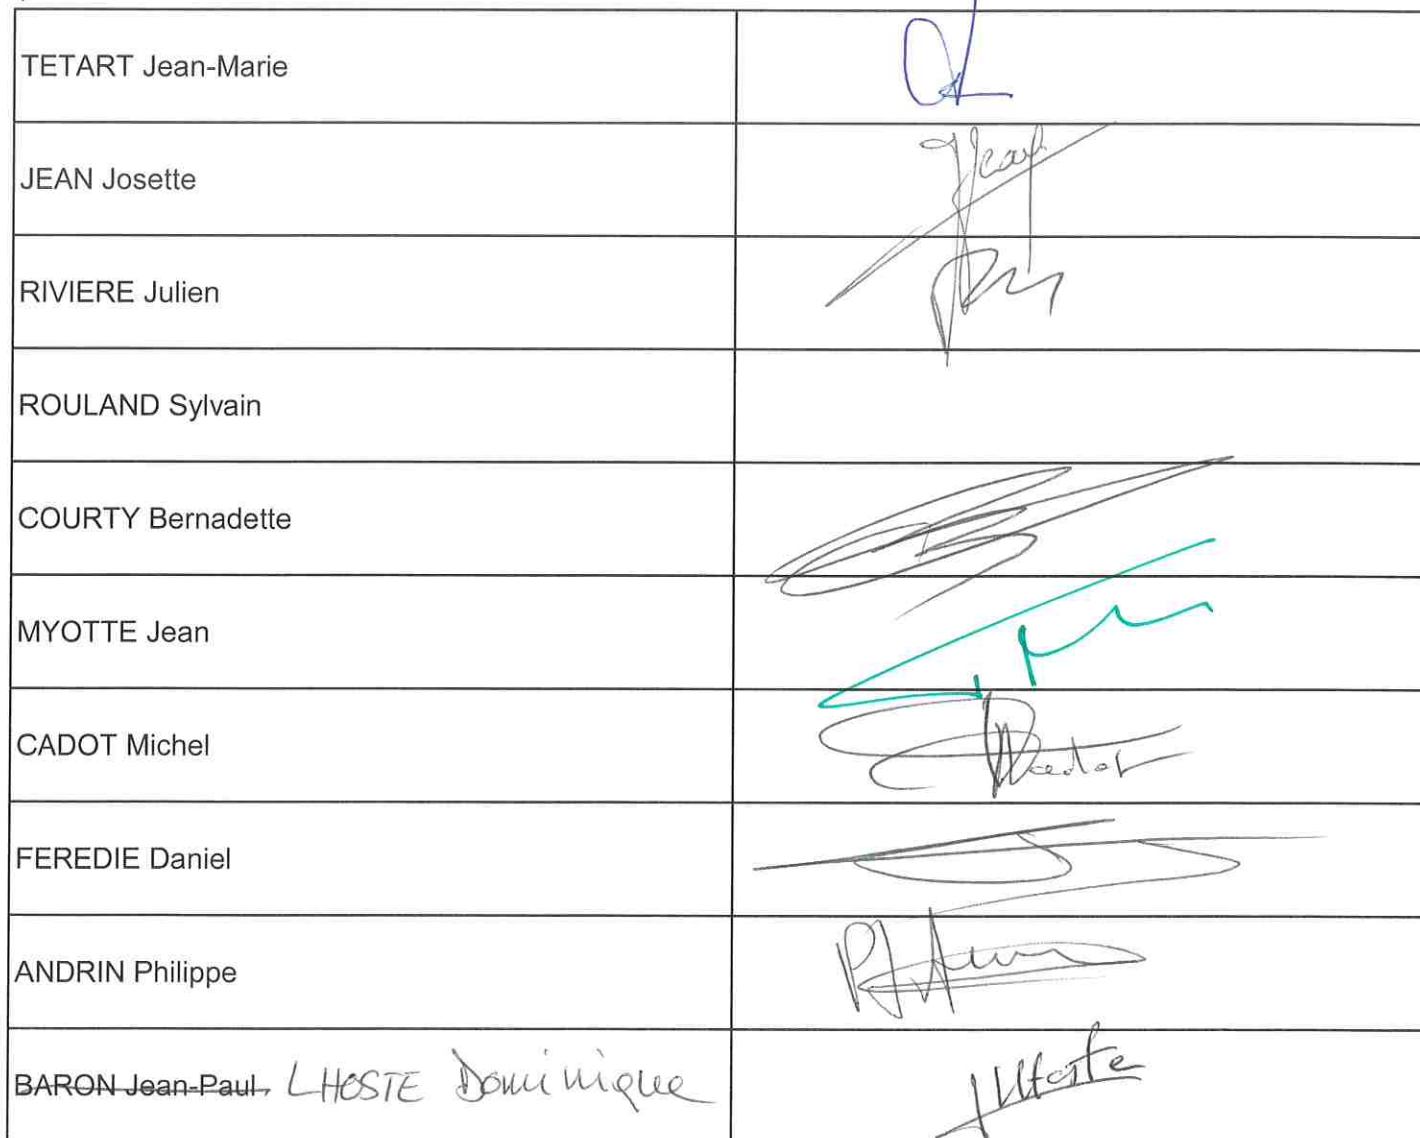 TETART Jean-Marie
JEAN Josette
RIVIERE Julien
ROULAND Sylvain
COURTY Bernadette
MYOTTE Jean
CADOT Michel
Cadot
FEREDIE Daniel
ANDRIN Philippe
BARON Jean-Paul LHOSTE Dominique